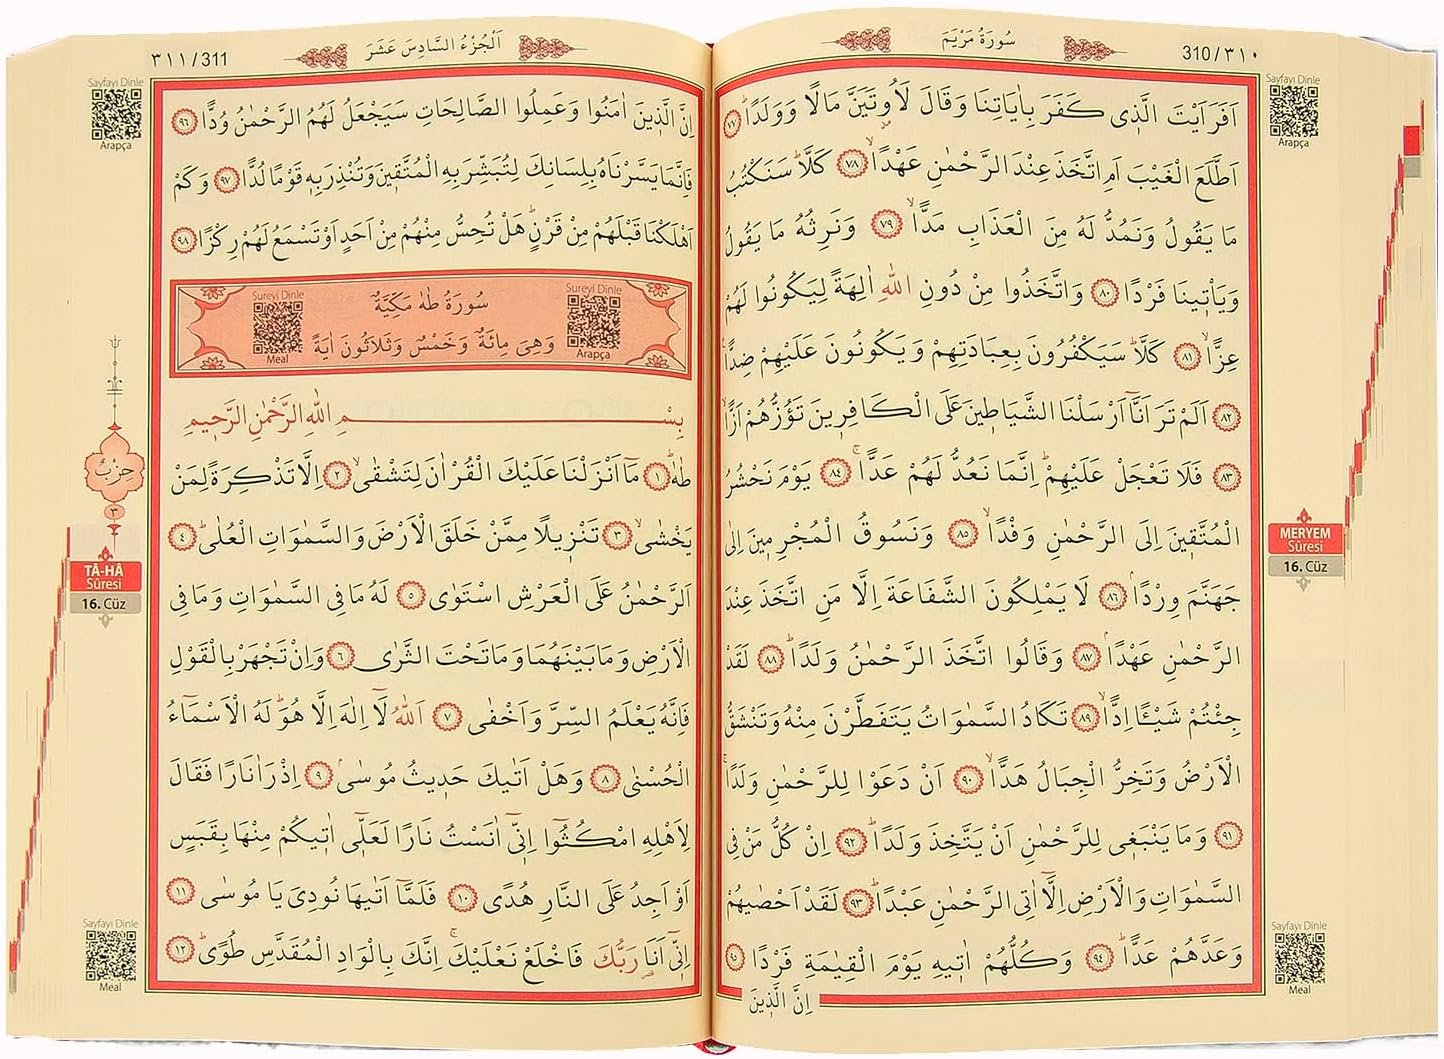 310/٣١٠
سُورَةُ مَرْيَمَ
Sayfayı Dinle
Arapça
اَفَرَاَيْتَ الَّذٖى كَفَرَ بِاٰيَاتِنَا وَقَالَ لَاُو۫تَيَنَّ مَالًا وَوَلَدًاۜ ﴿٧٧﴾
اَطَّلَعَ الْغَيْبَ اَمِ اتَّخَذَ عِنْدَ الرَّحْمٰنِ عَهْدًاۙ ﴿٧٨﴾ كَلَّاۜ سَنَكْتُبُ
مَا يَقُولُ وَنَمُدُّ لَهُ مِنَ الْعَذَابِ مَدًّاۙ ﴿٧٩﴾ وَنَرِثُهُ مَا يَقُولُ
وَيَأْتٖينَا فَرْدًا ﴿٨٠﴾ وَاتَّخَذُوا مِنْ دُونِ اللّٰهِ اٰلِهَةً لِيَكُونُوا لَهُمْ
عِزًّاۙ ﴿٨١﴾ كَلَّاۜ سَيَكْفُرُونَ بِعِبَادَتِهِمْ وَيَكُونُونَ عَلَيْهِمْ ضِدًّا
﴿٨٢﴾ اَلَمْ تَرَ اَنَّٓا اَرْسَلْنَا الشَّيَاطٖينَ عَلَى الْكَافِرٖينَ تَؤُزُّهُمْ اَزًّاۙ
﴿٨٣﴾ فَلَا تَعْجَلْ عَلَيْهِمْۜ اِنَّمَا نَعُدُّ لَهُمْ عَدًّاۚ ﴿٨٤﴾ يَوْمَ نَحْشُرُ
الْمُتَّقٖينَ اِلَى الرَّحْمٰنِ وَفْدًاۙ ﴿٨٥﴾ وَنَسُوقُ الْمُجْرِمٖينَ اِلٰى
جَهَنَّمَ وِرْدًاۢ ﴿٨٦﴾ لَا يَمْلِكُونَ الشَّفَاعَةَ اِلَّا مَنِ اتَّخَذَ عِنْدَ
الرَّحْمٰنِ عَهْدًاۢ ﴿٨٧﴾ وَقَالُوا اتَّخَذَ الرَّحْمٰنُ وَلَدًاۜ ﴿٨٨﴾ لَقَدْ
جِئْتُمْ شَيْـًٔا اِدًّاۙ ﴿٨٩﴾ تَكَادُ السَّمٰوَاتُ يَتَفَطَّرْنَ مِنْهُ وَتَنْشَقُّ
الْاَرْضُ وَتَخِرُّ الْجِبَالُ هَدًّاۙ ﴿٩٠﴾ اَنْ دَعَوْا لِلرَّحْمٰنِ وَلَدًاۚ
﴿٩١﴾ وَمَا يَنْبَغٖى لِلرَّحْمٰنِ اَنْ يَتَّخِذَ وَلَدًاۜ ﴿٩٢﴾ اِنْ كُلُّ مَنْ فِى
السَّمٰوَاتِ وَالْاَرْضِ اِلَّٓا اٰتِى الرَّحْمٰنِ عَبْدًاۜ ﴿٩٣﴾ لَقَدْ اَحْصٰيهُمْ
وَعَدَّهُمْ عَدًّاۜ ﴿٩٤﴾ وَكُلُّهُمْ اٰتٖيهِ يَوْمَ الْقِيٰمَةِ فَرْدًا ﴿٩٥﴾
اِنَّ الَّذٖينَ
MERYEM
Sûresi
16. Cüz
Sayfayı Dinle
Meal
اَلْجُزْءُ السَّادِسَ عَشَرَ
٣١١/311
Sayfayı Dinle
Arapça
اِنَّ الَّذٖينَ اٰمَنُوا وَعَمِلُوا الصَّالِحَاتِ سَيَجْعَلُ لَهُمُ الرَّحْمٰنُ وُدًّا ﴿٩٦﴾
فَاِنَّمَا يَسَّرْنَاهُ بِلِسَانِكَ لِتُبَشِّرَ بِهِ الْمُتَّقٖينَ وَتُنْذِرَ بِهٖ قَوْمًا لُدًّا ﴿٩٧﴾ وَكَمْ
اَهْلَكْنَا قَبْلَهُمْ مِنْ قَرْنٍۜ هَلْ تُحِسُّ مِنْهُمْ مِنْ اَحَدٍ اَوْ تَسْمَعُ لَهُمْ رِكْزًا ﴿٩٨﴾
Sureyi Dinle
Arapça
سُورَةُ طٰهٰ مَكِّيَّةٌ
وَهِىَ مِائَةٌ وَخَمْسٌ وَثَلَاثُونَ اٰيَةً
Sureyi Dinle
Meal
بِسْمِ اللّٰهِ الرَّحْمٰنِ الرَّحٖيمِ
طٰهٰ ﴿١﴾ مَٓا اَنْزَلْنَا عَلَيْكَ الْقُرْاٰنَ لِتَشْقٰىۙ ﴿٢﴾ اِلَّا تَذْكِرَةً لِمَنْ
يَخْشٰىۙ ﴿٣﴾ تَنْزٖيلًا مِمَّنْ خَلَقَ الْاَرْضَ وَالسَّمٰوَاتِ الْعُلٰىۜ ﴿٤﴾
اَلرَّحْمٰنُ عَلَى الْعَرْشِ اسْتَوٰى ﴿٥﴾ لَهُ مَا فِى السَّمٰوَاتِ وَمَا فِى
الْاَرْضِ وَمَا بَيْنَهُمَا وَمَا تَحْتَ الثَّرٰى ﴿٦﴾ وَاِنْ تَجْهَرْ بِالْقَوْلِ
فَاِنَّهُ يَعْلَمُ السِّرَّ وَاَخْفٰى ﴿٧﴾ اَللّٰهُ لَٓا اِلٰهَ اِلَّا هُوَۜ لَهُ الْاَسْمَٓاءُ
الْحُسْنٰى ﴿٨﴾ وَهَلْ اَتٰيكَ حَدٖيثُ مُوسٰىۢ ﴿٩﴾ اِذْ رَاٰ نَارًا فَقَالَ
لِاَهْلِهِ امْكُثُٓوا اِنّٖٓى اٰنَسْتُ نَارًا لَعَلّٖٓى اٰتٖيكُمْ مِنْهَا بِقَبَسٍ
اَوْ اَجِدُ عَلَى النَّارِ هُدًى ﴿١٠﴾ فَلَمَّٓا اَتٰيهَا نُودِىَ يَا مُوسٰى ﴿١١﴾
اِنّٖٓى اَنَا۬ رَبُّكَ فَاخْلَعْ نَعْلَيْكَۚ اِنَّكَ بِالْوَادِ الْمُقَدَّسِ طُوًىۜ ﴿١٢﴾
حِزْبُ
٣
TÂ-HÂ
Sûresi
16. Cüz
Sayfayı Dinle
Meal